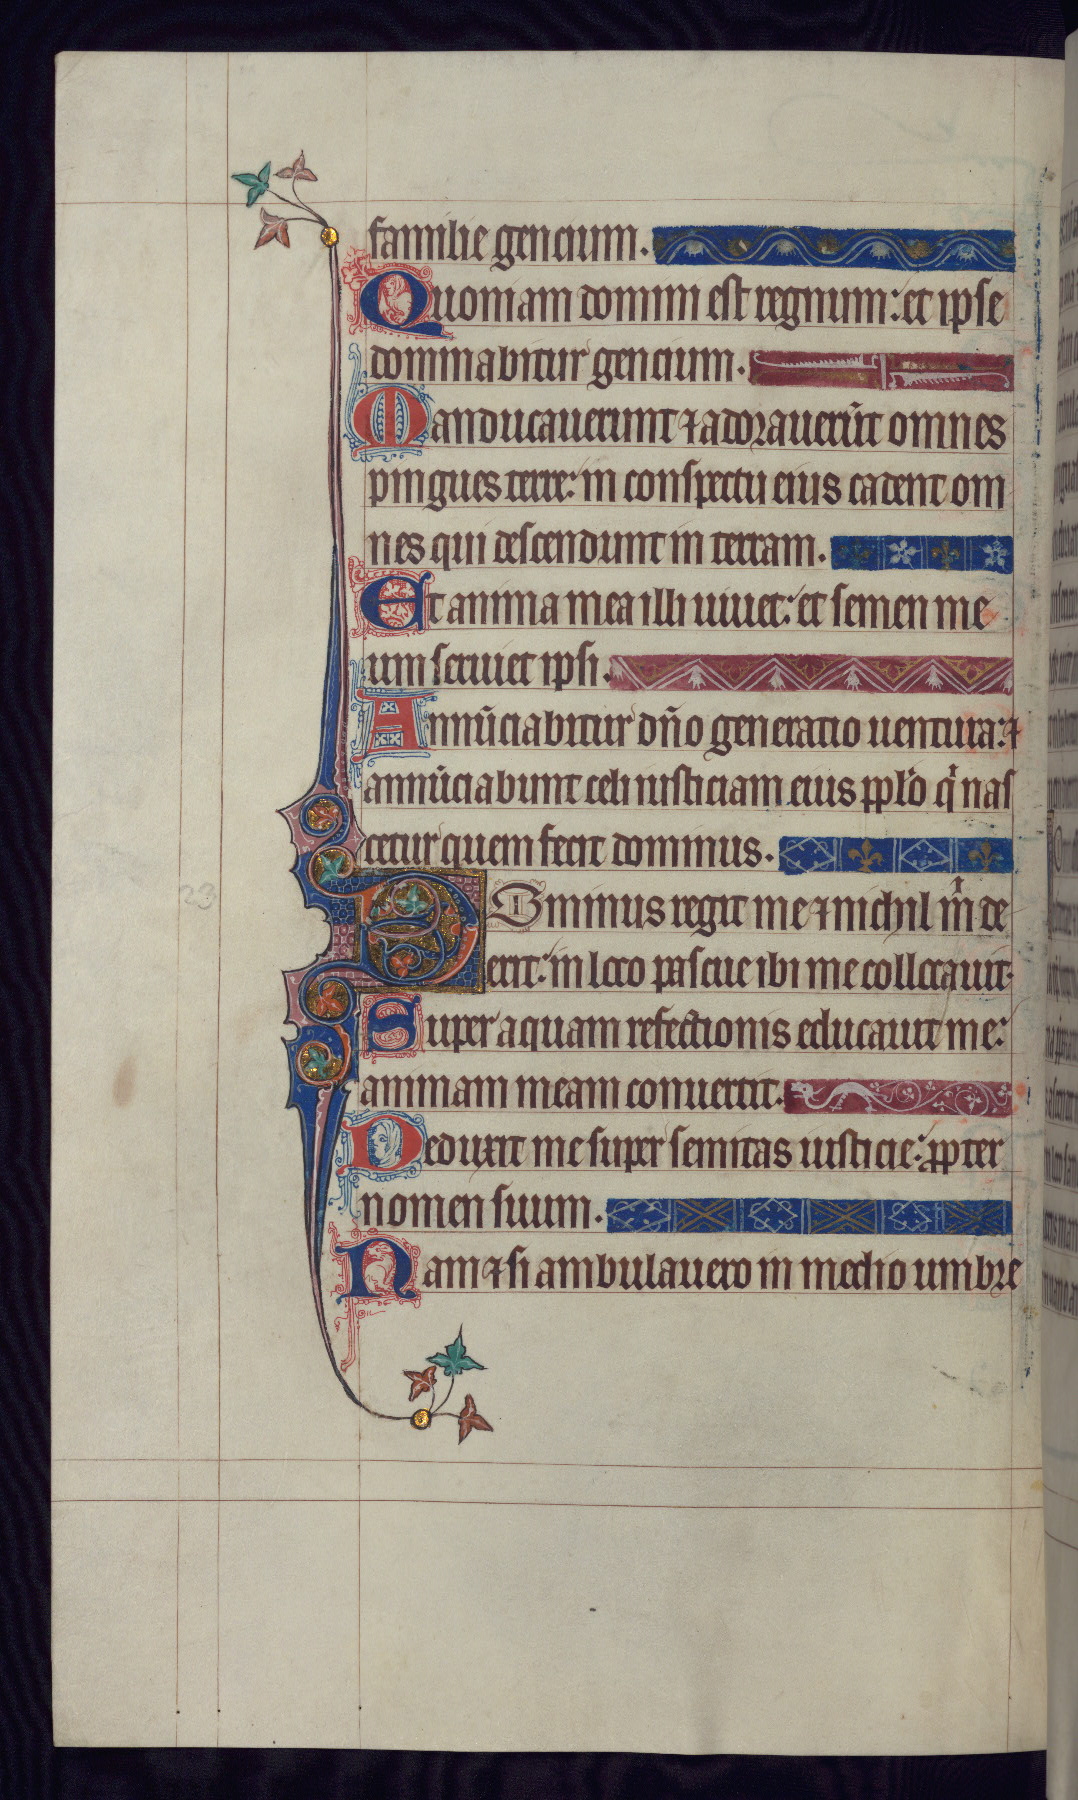 familie gencium.
Quoniam domini est regnum: et ipse
dominabitur gencium.
Manducauerunt ⁊ adorauerūt omnes
pingues terre: in conspectu eius cadent om
nes qui descendunt in terram.
Et anima mea illi uiuet: et semen me
um seruiet ipsi.
Annūciabitur dn̄o generatio uentura: ⁊
annūciabunt celi iusticiam eius pplo qͥ nas
cetur quem fecit dominus.
Dominus regit me ⁊ nichil mͥ de
erit: in loco pascue ibi me collocauit.
Super aquam refectionis educauit me:
animam meam conuertit.
Deduxit me super semitas iusticie: ꝓpter
nomen suum.
Nam ⁊ si ambulauero in medio umbre
23